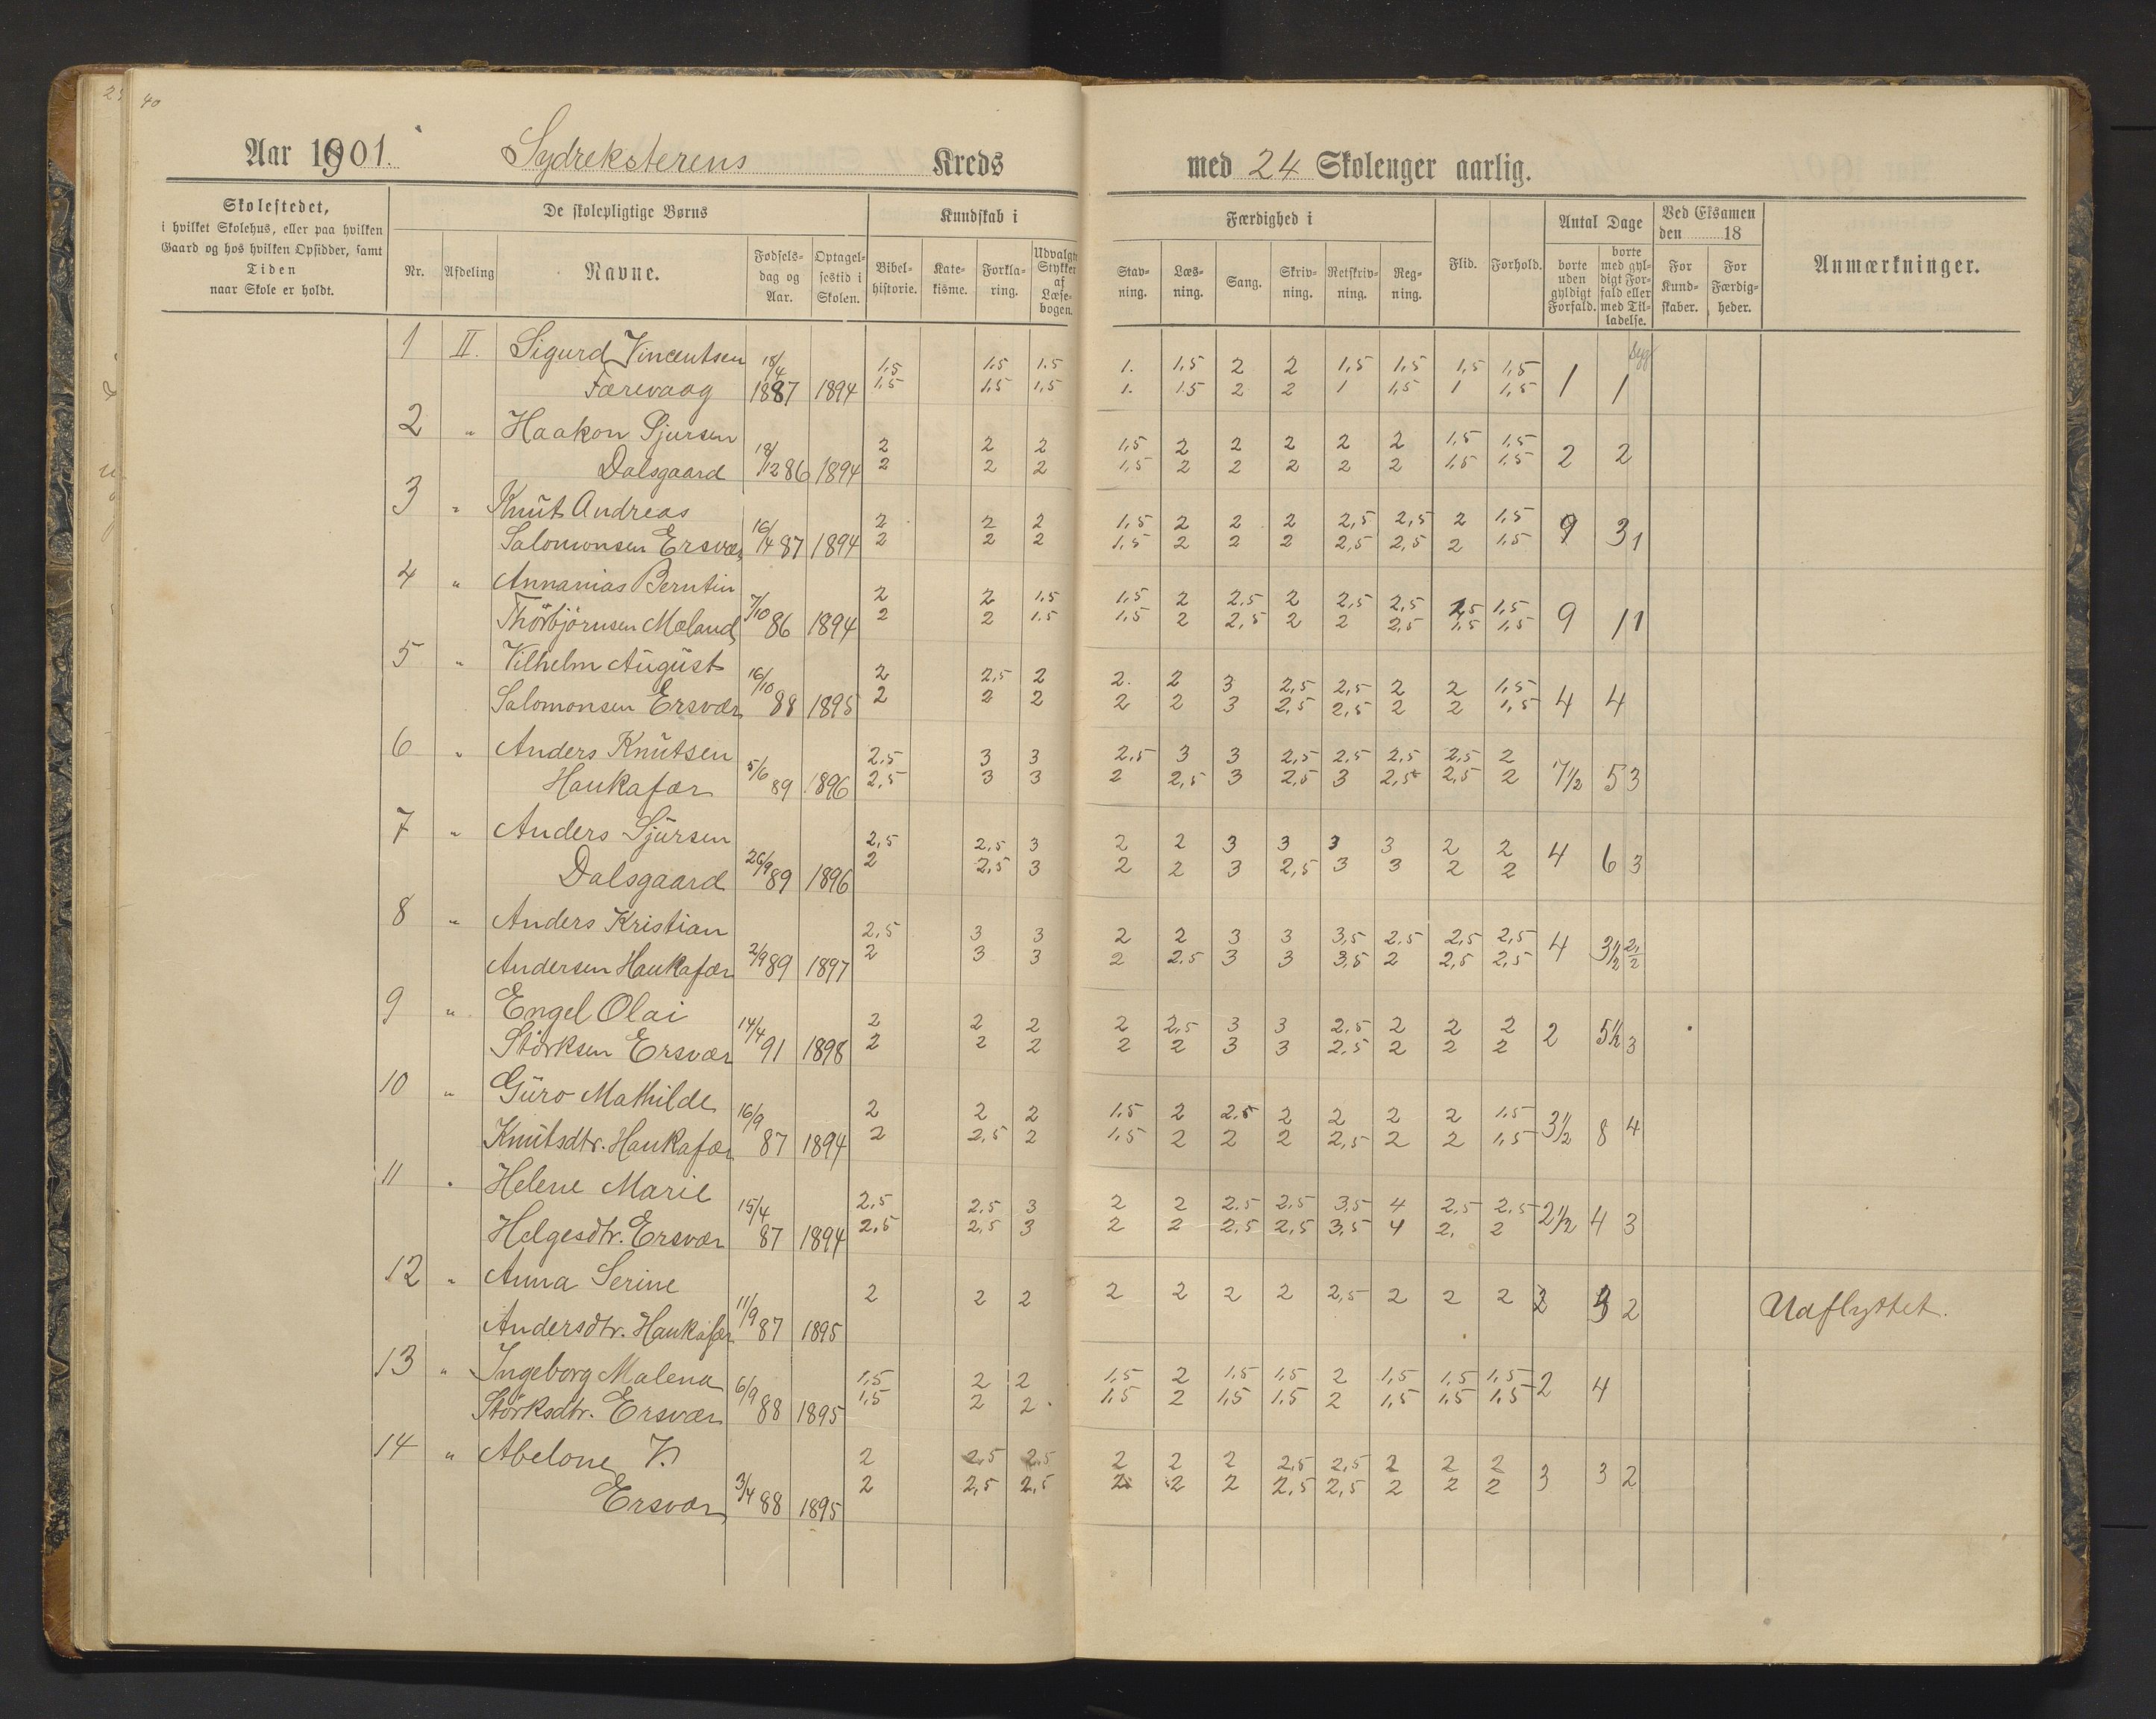 40
Aar 1901. Sydreksterens Kreds
med 24 Skoleuger aarlig.
Skolestedet,
i hvilket Skolehus, eller paa hvilken
Gaard og hos hvilken Opsidder, samt
Tiden
naar Skole er holdt.
De skolepligtige Børns
Nr. Afdeling Navne. Fødselsdag og Aar. Optagelsestid i Skolen.
Kundskab i
Bibelhistorie. Katekisme. Forklaring. Udvalgte Stykker af Læsebogen.
Færdighed i
Stavning. Læsning. Sang. Skrivning. Retskrivning. Regning.
Flid. Forhold.
Antal Dage
borte uden gyldigt Forfald. borte med gyldigt Forfald eller med Tilladelse.
Ved Eksamen den 18
For Kundskaber. For Færdigheder.
Anmærkninger.
1 II. Sigurd Vincentsen 18/4 1,5 1,5 1.5 1. 1,5 2 2 1,5 1,5 1,5 1,5 1 Syg 1
Færevaag 1887 1894 1,5 1,5 1,5 1. 1.5 2 2 1 1,5 1 1,5
2 " Haakon Sjursen 18/12 2 2 2 1,5 2 2 2 2 2 1,5 1,5 2 2
Dalsgaard 86 1894 2 2 2 1,5 2 2 2 2 2 1,5 1,5
3 " Knut Andreas 16/4 2 2 2 1,5 2 2 2 2,5 2,5 2 1,5 9 3 1
Salomonsen Ersvær 87 1894 2 2 2 1,5 2 2 2 2,5 2,5 2 1,5
4 " Annanias Berntin 7/10 2 2 1,5 1,5 2 2,5 2 2,5 2,5 1,5 1,5 9 1 1
Thorbjörnsen Mæland 86 1894 2 2 1.5 1,5 2 2,5 2 2 2,5 1,5 1,5
5 " Vilhelm August 16/10 2 2,5 2 2. 2 3 2,5 2,5 2 2 1,5 4 4
Salomonsen Ersvær 88 1895 2 2 2 2 2 3 2,5 2,5 2 2 1,5
6 " Anders Knutsen 5/6 2,5 3 3 2,5 3 3 2,5 2,5 2,5 2,5 2 7 1/2 5 3
Haukafær 89 1896 2,5 3 3 2 2,5 3 2,5 3 2,5 2,5 2
7 " Anders Sjursen 26/9 2,5 2,5 3 2 2 3 3 3 3 2 2 4 6 3
Dalsgaard 89 1896 2 2,5 3 2 2 3 2,5 3 3 2 2
8 " Anders Kristian 2/9 2,5 3 3 2 2 3 3 3,5 2,5 2,5 2,5 4 3 1/2 2 1/2
Andersen Haukafær 89 1897 2 3 3 2 2,5 3 3 3,5 2 2,5 2,5
9 " Engel Olai 14/4 2 2 2 2 2,5 3 3 2,5 2 2 2 2 5 1/2 3
Störksen Ersvær 91 1898 2 2 2 2 2 3 3 2,5 2 2 2
10 " Guro Mathilde 16/9 2 2 2 1,5 2 2,5 2 2 2 2 1,5 3 1/2 8 4
Knutsdtr. Haukafær 87 1894 2 2,5 2 1,5 2 2 2 2,5 2 2 1,5
11 " Helene Marie 15/4 2,5 2,5 3 2 2 2,5 2,5 3,5 4 2,5 2,5 2 1/2 4 3
Helgesdtr. Ersvær 87 1894 2,5 2,5 3 2 2 2,5 2,5 3,5 4 2, 2
12 " Anna Serine 11/9 2 2 2 2 2 2 2 2,5 2 2 2 2 2 Udflyttet.
Andersdtr. Haukafær 87 1895
13 " Ingeborg Malena 6/9 1,5 2 2 1,5 2 1,5 1,5 2 1,5 1,5 1,5 2 4
Störksdtr. Ersvær 88 1895 1,5 2 2 1,5 2 1,5 1,5 2 1,5 1,5 1,5
14 " Abelone V. 3/4 2 2,5 2,5 2 2 2 2,5 2,5 2 2 2 3 3 2
Ersvær 88 1895 2 2,5 2,5 2 2 2 2,5 2,5 2 2 2